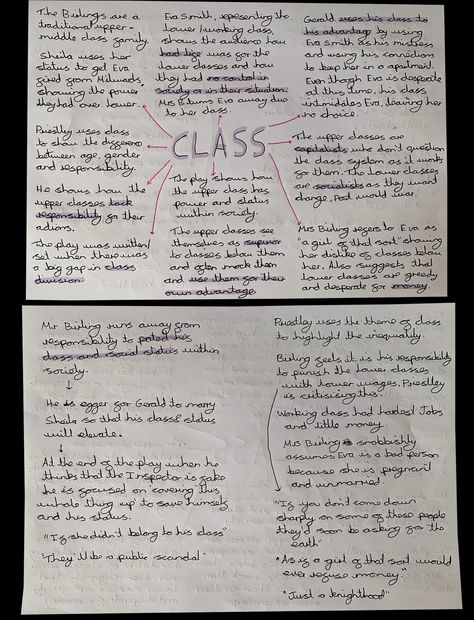 The Birlings are a
traditional upper-
middle class family.
Sheila uses her
status to get Eva
fired from Milwards,
showing the power
they had over lower.
Priestley uses class
to show the difference
between age, gender
and responsibility.
He shows how the
upper classes lack
responsibility for their
actions.
The play was written/
set when there was
a big gap in class
division.
Eva Smith, representing the
lower/working class,
shows the audience how
hard life was for the
lower classes and how
they had no control in
society or in their situation.
Mrs B turns Eva away due
to her class.
CLASS
The play shows how
the upper class has
power and status
within society.
The upper classes see
themselves as superior
to classes below them
and often mock them
and use them for their
own advantage.
Gerald uses his class to
his advantage by using
Eva Smith as his mistress
and using his connections
to keep her in a apartment.
Even though Eva is desperate
at this time, his class
intimidates Eva, leaving her
no choice.
The upper classes are
capitalists who don't question
the class system as it works
for them. The lower classes
are socialists as they want
change, Post world war.
Mrs Birling refers to Eva as
"a girl of that sort" showing
her dislike of classes below
her. Also suggests that
lower classes are greedy
and desperate for money.
Mr Birling runs away from
responsibility to his
class and social status within
society.
He is egger for Gerald to marry
Sheila so that his class & status
will elevate.
At the end of the play when he
thinks that the Inspector is fake
he is focused on covering this
whole thing up to save himself
and his status.
"If she didn't belong to his class"
"They'll be a public scandal"
Priestley uses the theme of class
to highlight the inequality.
Birling feels it is his responsibility
to punish the lower classes
with lower wages. Priestley
is criticising this.
Working class had hardest Jobs
and little money.
Mrs Birling snobbishly
assumes Eva is a bad person
because she is pregnant
and unmarried.
"If you don't come down
sharply on some of these people
they'd soon be asking for the
earth"
"As if a girl of that sort would
ever refuse money."
"Just a knighthood"